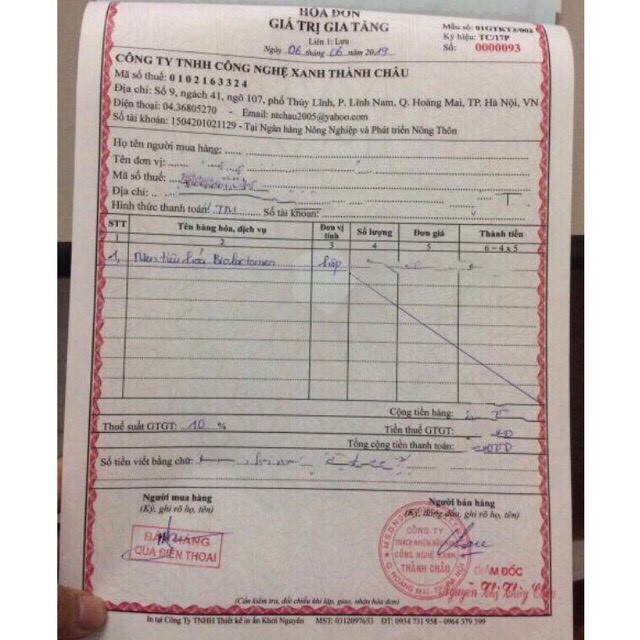 HÓA ĐƠN
GIÁ TRỊ GIA TĂNG
Liên 1: Lưu
Ngày 06 tháng 06 năm 2019
Mẫu số: 01GTKT3/002
Ký hiệu: TC/17P
Số: 0000093
CÔNG TY TNHH CÔNG NGHỆ XANH THÀNH CHÂU
Mã số thuế: 0102163324
Địa chỉ: Số 9, ngách 41, ngõ 107, phố Thúy Lĩnh, P. Lĩnh Nam, Q. Hoàng Mai, TP. Hà Nội, VN
Điện thoại: 04.36805270 - Email: ntchau2005@yahoo.com
Số tài khoản: 1504201021129 - Tại Ngân hàng Nông Nghiệp và Phát triển Nông Thôn
Họ tên người mua hàng:
Tên đơn vị:
Mã số thuế:
Địa chỉ:
Hình thức thanh toán: TM Số tài khoản:
STT Tên hàng hóa, dịch vụ Đơn vị tính Số lượng Đơn giá Thành tiền
1 2 3 4 5 6 = 4 x 5
1, Men tiêu hóa Biolactomen hộp
Cộng tiền hàng:
Thuế suất GTGT: 10 % Tiền thuế GTGT:
Tổng cộng tiền thanh toán:
Số tiền viết bằng chữ:
Người mua hàng
(Ký, ghi rõ họ, tên)
BÁN HÀNG
QUA ĐIỆN THOẠI
Người bán hàng
(Ký, đóng dấu, ghi rõ họ, tên)
CÔNG TY
TRÁCH NHIỆM HỮU HẠN
CÔNG NGHỆ XANH
THÀNH CHÂU
GIÁM ĐỐC
Nguyễn Thị Thùy
(Cần kiểm tra, đối chiếu khi lập, giao, nhận hóa đơn)
In tại Công Ty TNHH Thiết kế in ấn Khởi Nguyên - MST: 0312097653 - ĐT: 0934 731 958 - 0964 579 399